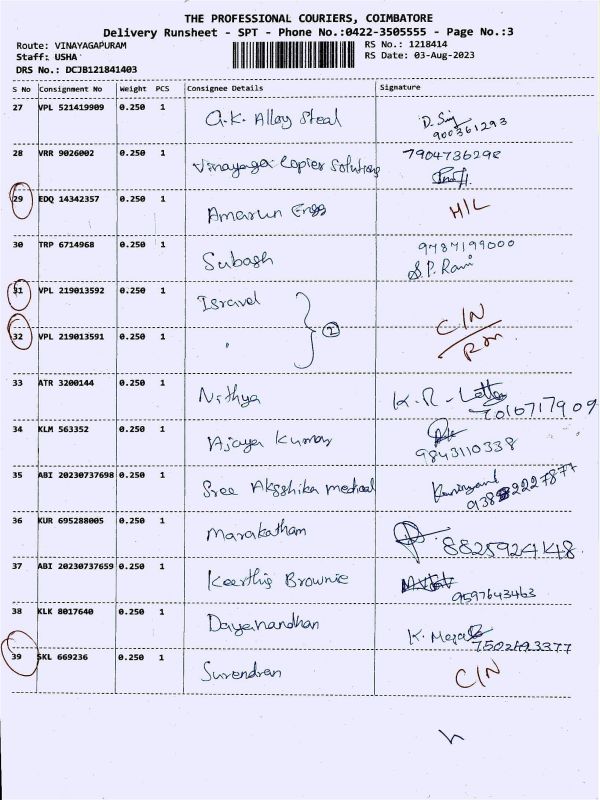 THE PROFESSIONAL COURIERS, COIMBATORE
Delivery Runsheet - SPT - Phone No.:0422-3505555 - Page No.:3
Route: VINAYAGAPURAM RS No.: 1218414
Staff: USHA RS Date: 03-Aug-2023
DRS No.: DCJB121841403
S No Consignment No Weight PCS Consignee Details Signature
27 VPL 521419909 0.250 1 G.K. Alloy Steal
900361293
28 VRR 9026002 0.250 1 Vinayaga Copier Solutions 7904736298
29 EDQ 14342357 0.250 1 Amarun Engg H/L
30 TRP 6714968 0.250 1 Subash 9787199000
S.P. Rani
31 VPL 219013592 0.250 1 Isravel
2
C/N
32 VPL 219013591 0.250 1 "
33 ATR 3200144 0.250 1 Nithya K. R -
7010717909
34 KLM 563352 0.250 1 Ajaya Kumar
9843110338
35 ABI 20230737698 0.250 1 Sree Aksshika medical
36 KUR 695288005 0.250 1 Marakatham
8825924148
37 ABI 20230737659 0.250 1 Keerthis Brownie
9597643463
38 KLK 8017640 0.250 1 Dayanandhan K.
7502493377
39 SKL 669236 0.250 1 Surendran C/N